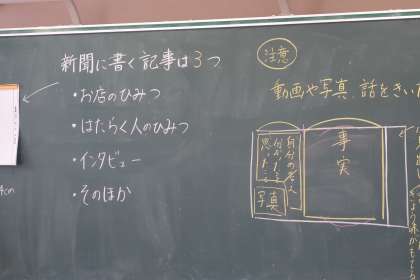 新聞に書く記事は3つ
・お店のひみつ
・はたらく人のひみつ
・インタビュー
・そのほか
注意
動画や写真、話をきいた
事実
自分の考え
分かったこと
思ったこと
写真